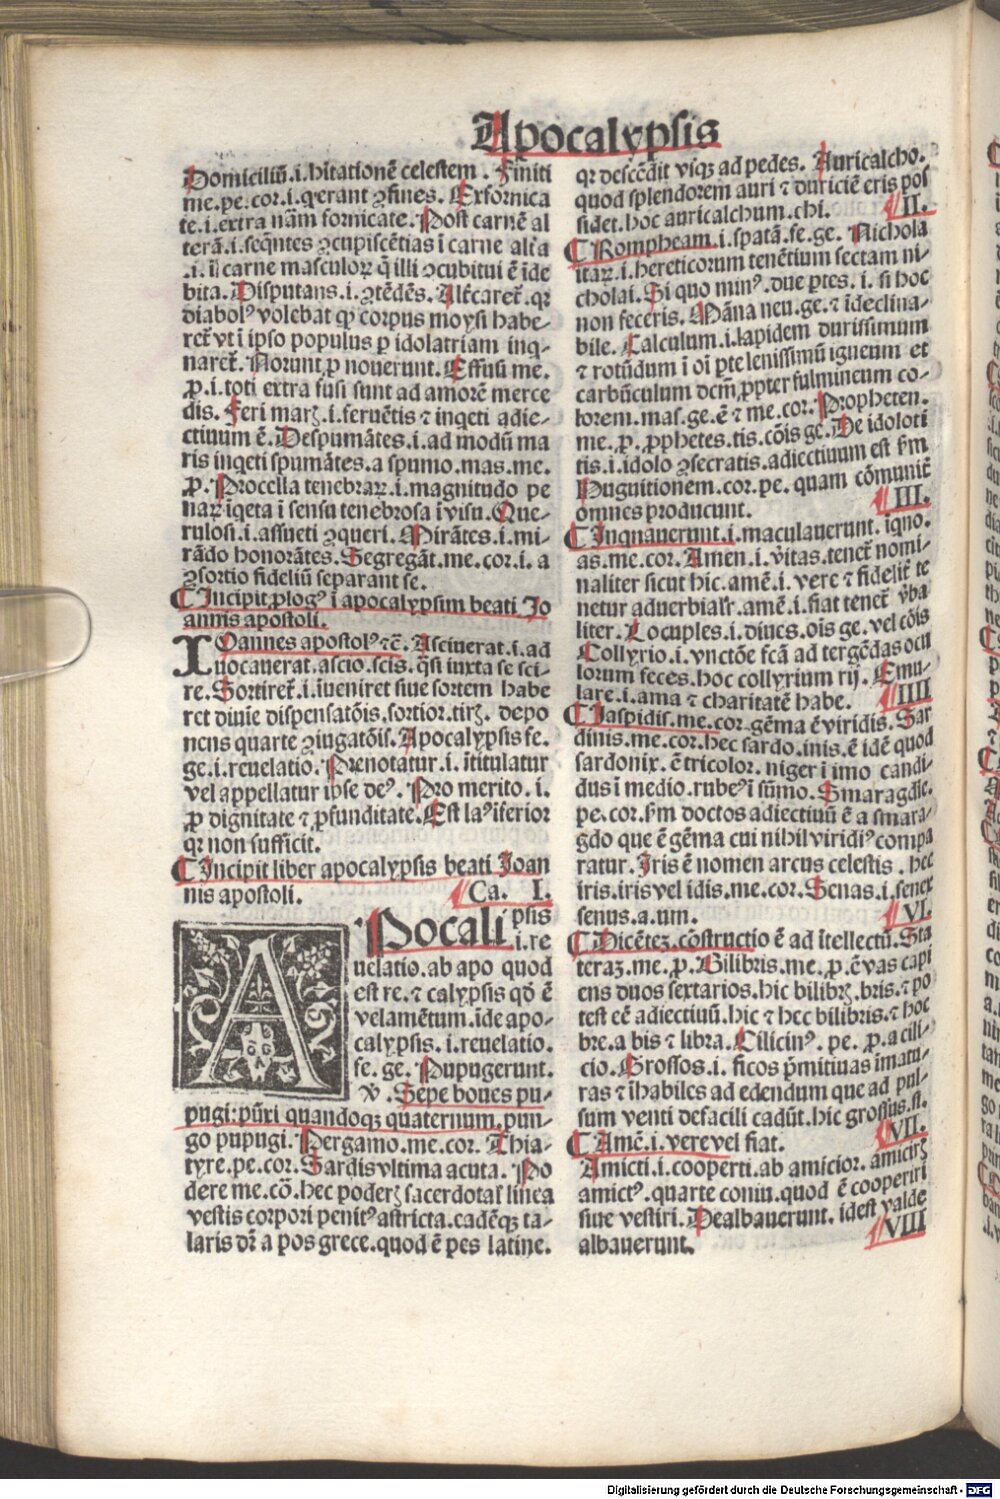 Apocalypsis
Domiciliũ.i.hitationẽ celestem. Finiti
me.pe.cor.i.q̃erant ꝯfines. Exfornica
te.i.extra nãm fornicate. Post carnẽ al
terã.i.seq̃ntes ꝯcupiscẽtias ĩ carne alťa
.i. ĩ carne masculoꝝ q̃ illi ꝯcubitui ẽ ĩde
bita. Disputans.i.ꝯtẽdẽs. Alťcareť. qꝛ
diabolꝰ volebat qͥ corpus moysi habe-
reť vt ĩ ipso populus ꝑ idolatriam inq-
nareť. Norunt ꝓ nouerunt. Effusi me.
ꝓ.i.toti extra fusi sunt ad amorẽ merce
dis. Feri marꝫ.i.feruẽtis ⁊ inqeti adie-
ctiuum ẽ. Despumãtes.i.ad modũ ma
ris inqeti spumãtes.a spumo.mas.me.
ꝓ. Procella tenebraꝝ.i.magnitudo pe
naꝝ iqeta ĩ sensu tenebrosa ĩ visu. Que-
rulosi.i.assueti ꝯqueri. Mirãtes.i.mi-
rãdo honorãtes. Segregãt.me.cor.i.a
ꝯsortio fideliũ separant se.
¶ Incipit ꝓlogꝰ ĩ apocalypsim beati Jo
annis apostoli.
IOannes apostolꝰ ⁊c̃. Asciuerat.i.ad
uocauerat.ascio.scis. q̃si iuxta se sci-
re. Sortireť.i.iueniret siue sortem habe
ret diuie dispensatõis.sortior.tirꝫ. depo
nens quarte ꝯiugatõis. Apocalypsis fe.
ge.i.reuelatio. Prenotatur.i.ĩtitulatur
vel appellatur ipse deꝰ. Pro merito.i.
ꝓ dignitate ⁊ ꝓfunditate. Est laꝰ iferior
qꝛ non sufficit.
¶ Incipit liber apocalypsis beati Joan
nis apostoli. Ca. I.
APocalipsis
.i.re
uelatio.ab apo quod
est re. ⁊ calypsis qð ẽ
velamẽtum.ĩde apo-
calypsis.i.reuelatio.
fe.ge. Pupugerunt.
ꝟ. Sepe boues pu-
pugi: pũri quandoqꝫ quaternum.pun-
go pupugi. Pergamo.me.cor. Thia-
tyre.pe.cor. Sardis vltima acuta. Po
dere me.cõ.hec poderꝫ sacerdotať linea
vestis corpori penitꝰ astricta.cadẽqꝫ ta-
laris dr̃ a pos grece.quod ẽ pes latine.
qꝛ descẽdit vsqꝫ ad pedes. Auricalcho.
quod splendorem auri ⁊ duriciẽ eris pos
sidet.hoc auricalchum.chi. II.
¶ Rompheam.i.spatã.fe.ge. Nichola
itaꝝ.i.hereticorum tenẽtium sectam ni-
cholai. Si quo minꝰ.due ꝑtes.i. si hoc
non feceris. Mãna neu.ge. ⁊ ĩdeclina-
bile. Calculum.i.lapidem durissimum
⁊ rotũdum ĩ oĩ ꝑte lenissimũ igneum et
carbũculum dcm̃ ꝓpter fulmineum co-
lorem.mas.ge.ẽ ⁊ me.cor. Propheten.
me.ꝓ.ꝓphetes.tis.cõis ge. De idoloti
tis.i.idolo ꝯsecratis.adiectiuum est ẜm
Pugnitionem.cor.pe. quam cõmuniť
omnes producunt. III.
¶ Inqnauerunt.i.maculauerunt. iqno.
as.me.cor. Amen.i.vitas.teneť nomi-
naliter sicut hic.amẽ.i.vere ⁊ fideliť te
netur aduerbiať.amẽ.i.fiat teneť ꝟba
liter. Locuples.i.diues.oĩs ge.vel cõis
Collyrio.i.vnctõe fcã ad tergẽdas ocu
lorum feces.hoc collyrium rij. Emu-
lare.i.ama ⁊ charitatẽ habe. IIII
¶ Jaspidis.me.cor.gẽma ẽ viridis. Sar
dinis.me.cor.hec sardo.inis.ẽ idẽ quod
sardonix.ẽ tricolor. niger ĩ imo candi-
dus ĩ medio.rubeꝰ ĩ sũmo. Smaragdie.
pe.cor.ẜm doctos adiectiuũ ẽ a smara-
gdo que ẽ gẽma cui nihil viridiꝰ compa
ratur. Iris ẽ nomen arcus celestis. hec
iris.iris vel idis.me.cor. Senas.i.senex
senus.a.um. VI.
¶ Dicẽtez.cõstructio ẽ ad ĩtellectũ. Sta
teraꝫ.me.ꝓ. Bilibris.me.ꝓ.ẽ vas capi
ens duos sextarios.hic bilibrꝫ.bris.⁊ po
test eẽ adiectiuũ.hic ⁊ hec bilibris.⁊ hoc
bre.a bis ⁊ libra. Cilicinꝰ.pe.ꝓ.a cili-
cio. Grossos.i. ficos p̃mitiuas ĩmatu-
ras ⁊ ĩhabiles ad edendum que ad pul-
sum venti defacili cadũt.hic grossus.si.
¶ Amẽ.i.vere vel fiat. VII.
Amicti.i.cooperti.ab amicior.amicirꝫ
amictꝰ.quarte coniu.quod ẽ cooperiri
siue vestiri. Dealbauerunt.idest valde
albauerunt. VIII
Digitalisierung gefördert durch die Deutsche Forschungsgemeinschaft - DFG